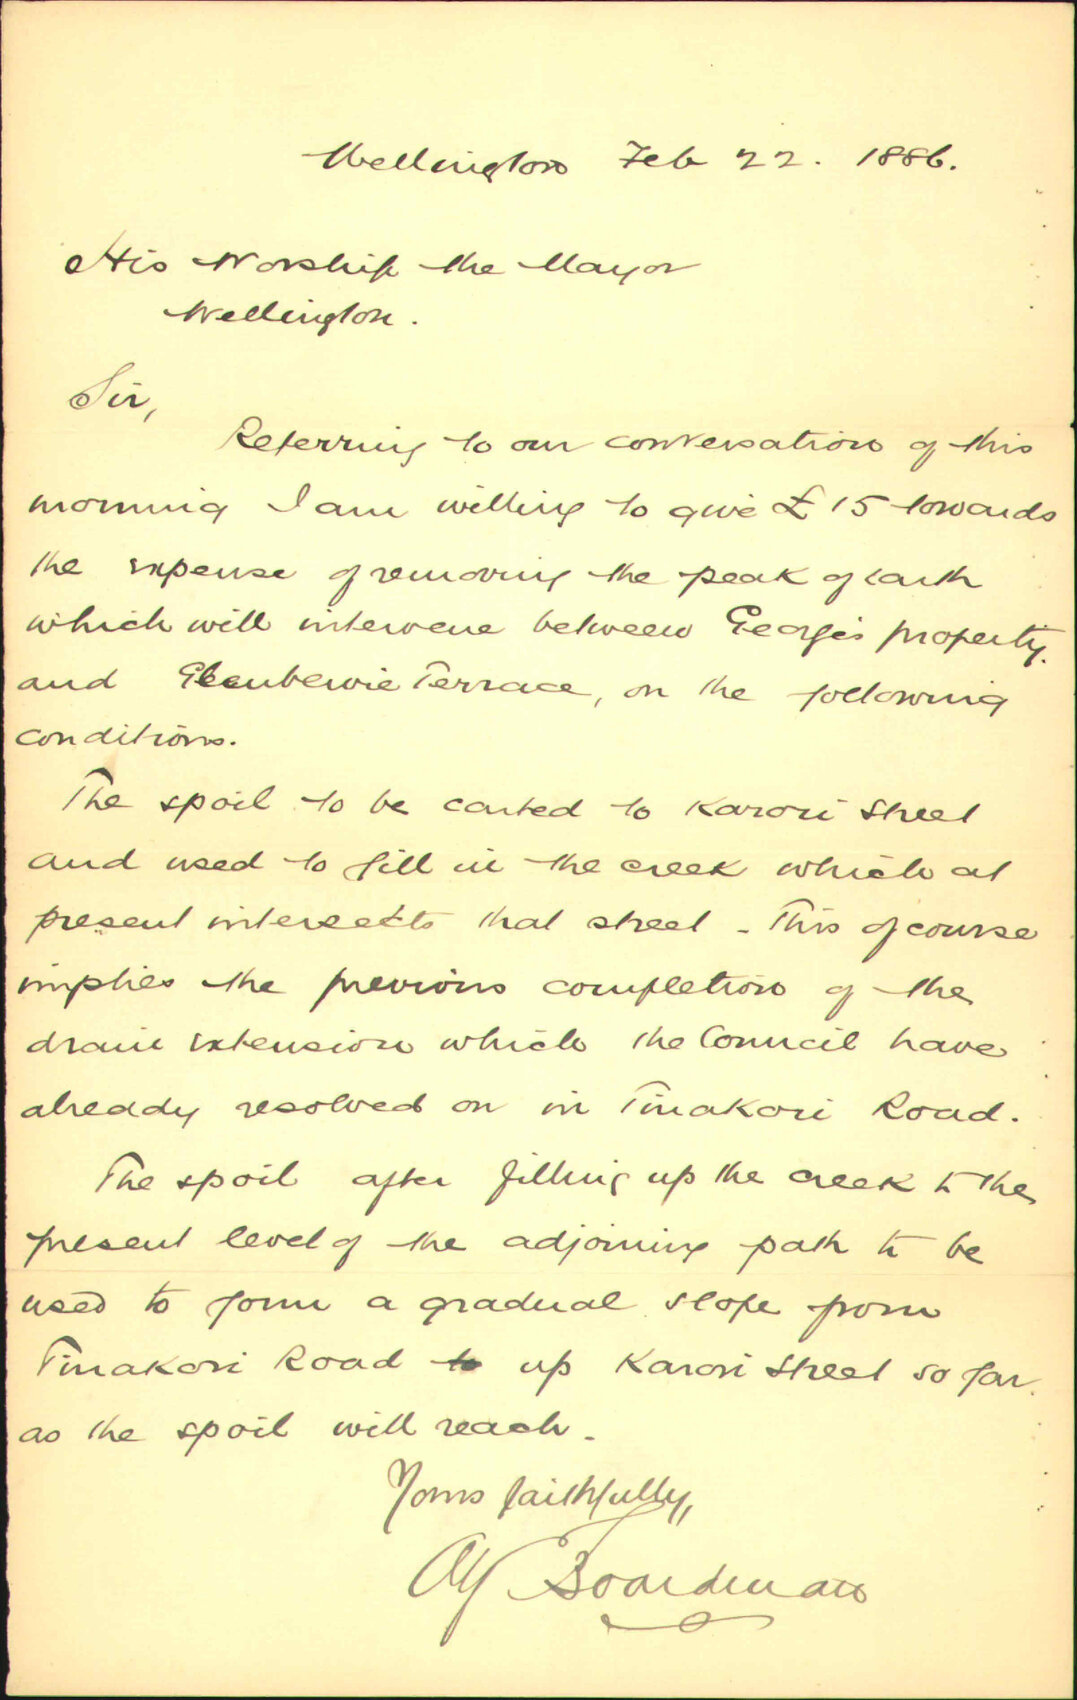 Wellington Feb 22. 1886.
His Worship the Mayor
Wellington.
Sir,
Referring to our conversation of this
morning I am willing to give £15 towards
the expense of removing the peak of earth
which will intervene between George's property
and Glenbervie Terrace, on the following
conditions.
The spoil to be carted to Karori Street
and used to fill in the creek which at
present intersects that street - This of course
implies the previous completion of the
drain extension which the Council have
already resolved on in Tinakori Road.
The spoil after filling up the creek to the
present level of the adjoining path to be
used to form a gradual slope from
Tinakori Road up Karori Street so far
as the spoil will reach.
Yours faithfully,
Boardman